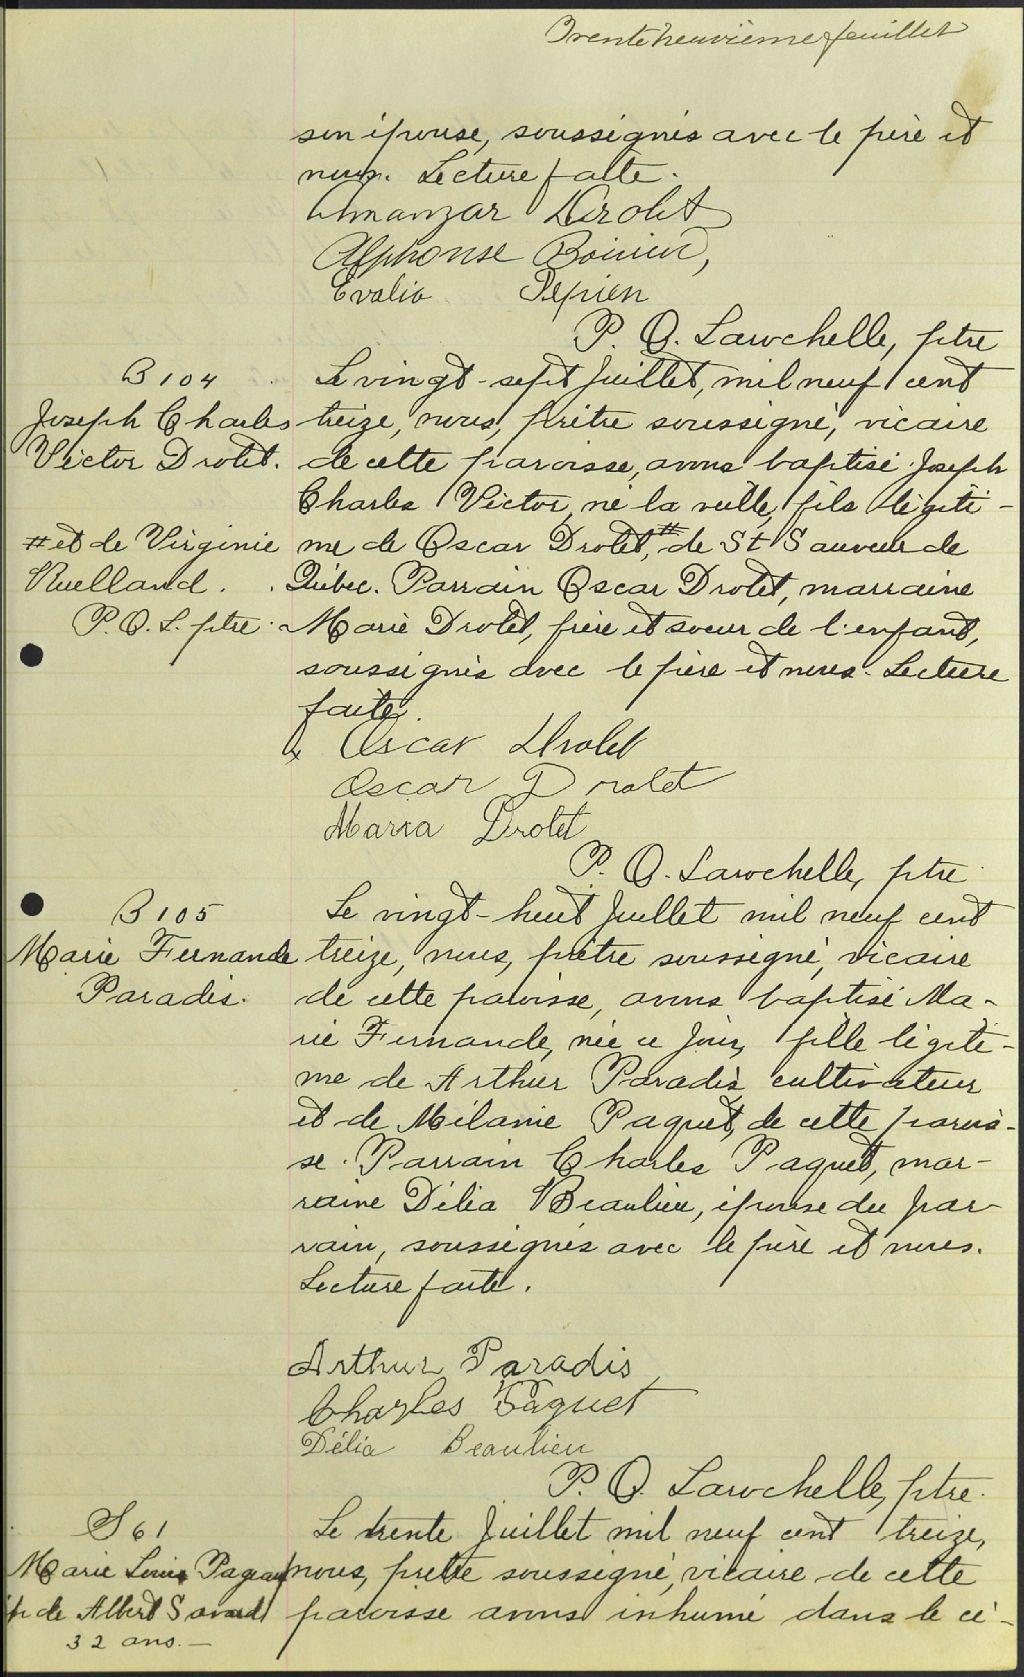 Trente neuvième feuillet
son épouse, soussignés avec le père et
nous. Lecture faite.
Amanzar Drolet
Alphonse
Evalia Pepien
P. O. Larochelle, ptre
B 104
Joseph Charles
Victor Drolet.
# et de Virginie
Ruelland.
P. O. L. ptre.
Le vingt-sept Juillet, mil neuf cent
treize, nous, prêtre soussigné, vicaire
de cette paroisse, avons baptisé Joseph
Charles Victor, né la veille, fils légiti-
me de Oscar Drolet, # de St Sauveur de
Québec. Parrain Oscar Drolet, marraine
Marie Drolet, frère et soeur de l'enfant,
soussignés avec le père et nous. Lecture
faite.
Oscar Drolet
Oscar Drolet
Maria Drolet
P. O. Larochelle, ptre
B 105
Marie Fernande
Paradis.
Le vingt-huit Juillet mil neuf cent
treize, nous, prêtre soussigné, vicaire
de cette paroisse, avons baptisé Ma-
rie Fernande, née ce jour, fille légiti-
me de Arthur Paradis cultivateur
et de Mélanie Paquet, de cette parois-
se. Parrain Charles Paquet, mar-
raine Délia Beaulieu, épouse du par-
rain, soussignés avec le père et nous.
Lecture faite.
Arthur Paradis
Charles Paquet
Délia Beaulieu
P. O. Larochelle, ptre.
S 61
Marie Louise Pageau
ép de Albert Savard
32 ans. —
Le trente Juillet mil neuf cent treize,
nous, prêtre soussigné, vicaire de cette
paroisse avons inhumé dans le ci-